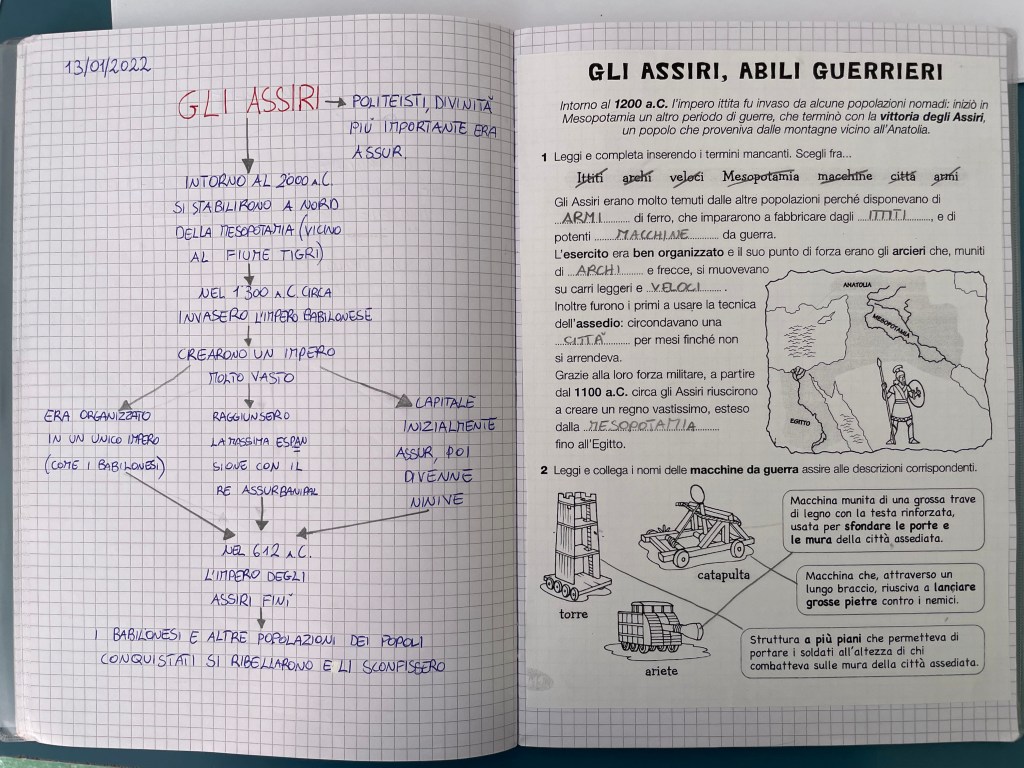 13/01/2022
GLI ASSIRI → POLITEISTI, DIVINITÀ
PIÙ IMPORTANTE ERA
ASSUR.
INTORNO AL 2000 A.C.
SI STABILIRONO A NORD
DELLA MESOPOTAMIA (VICINO
AL FIUME TIGRI)
NEL 1300 A.C. CIRCA
INVASERO L'IMPERO BABILONESE
CREARONO UN IMPERO
MOLTO VASTO
ERA ORGANIZZATO
IN UN UNICO IMPERO
(COME I BABILONESI)
RAGGIUNSERO
LA MASSIMA ESPAN
SIONE CON IL
RE ASSURBANIPAL
CAPITALE
INIZIALMENTE
ASSUR, POI
DIVENNE
NINIVE
NEL 612 A.C.
L'IMPERO DEGLI
ASSIRI FINÌ
I BABILONESI E ALTRE POPOLAZIONI DEI POPOLI
CONQUISTATI SI RIBELLARONO E LI SCONFISSERO
GLI ASSIRI, ABILI GUERRIERI
Intorno al 1200 a.C. l'impero ittita fu invaso da alcune popolazioni nomadi: iniziò in
Mesopotamia un altro periodo di guerre, che terminò con la vittoria degli Assiri,
un popolo che proveniva dalle montagne vicino all'Anatolia.
1 Leggi e completa inserendo i termini mancanti. Scegli fra...
Ittiti archi veloci Mesopotamia macchine città armi
Gli Assiri erano molto temuti dalle altre popolazioni perché disponevano di
ARMI di ferro, che impararono a fabbricare dagli ITTITI, e di
potenti MACCHINE da guerra.
L'esercito era ben organizzato e il suo punto di forza erano gli arcieri che, muniti
di ARCHI e frecce, si muovevano
su carri leggeri e VELOCI.
Inoltre furono i primi a usare la tecnica
dell'assedio: circondavano una
CITTÀ per mesi finché non
si arrendeva.
Grazie alla loro forza militare, a partire
dal 1100 a.C. circa gli Assiri riuscirono
a creare un regno vastissimo, esteso
dalla MESOPOTAMIA
fino all'Egitto.
ANATOLIA
MESOPOTAMIA
EGITTO
2 Leggi e collega i nomi delle macchine da guerra assire alle descrizioni corrispondenti.
torre
catapulta
ariete
Macchina munita di una grossa trave
di legno con la testa rinforzata,
usata per sfondare le porte e
le mura della città assediata.
Macchina che, attraverso un
lungo braccio, riusciva a lanciare
grosse pietre contro i nemici.
Struttura a più piani che permetteva di
portare i soldati all'altezza di chi
combatteva sulle mura della città assediata.